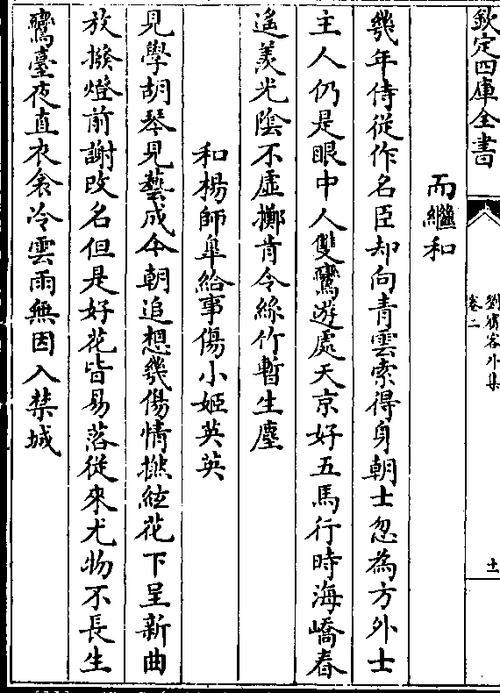 欽定四庫全書
劉賓客外集
卷二
十一
而繼和
幾年侍從作名臣却向青雲索得身朝士忽為方外士
主人仍是眼中人雙鸞遊處天京好五馬行時海嶠春
遙羡光陰不虛擲肯令絲竹暫生塵
和楊師臯給事傷小姬英英
見學胡琴見藝成今朝追想幾傷情撚絃花下呈新曲
放撥燈前謝改名但是好花皆易落從來尤物不長生
鸞臺夜直衣衾冷雲雨無因入禁城